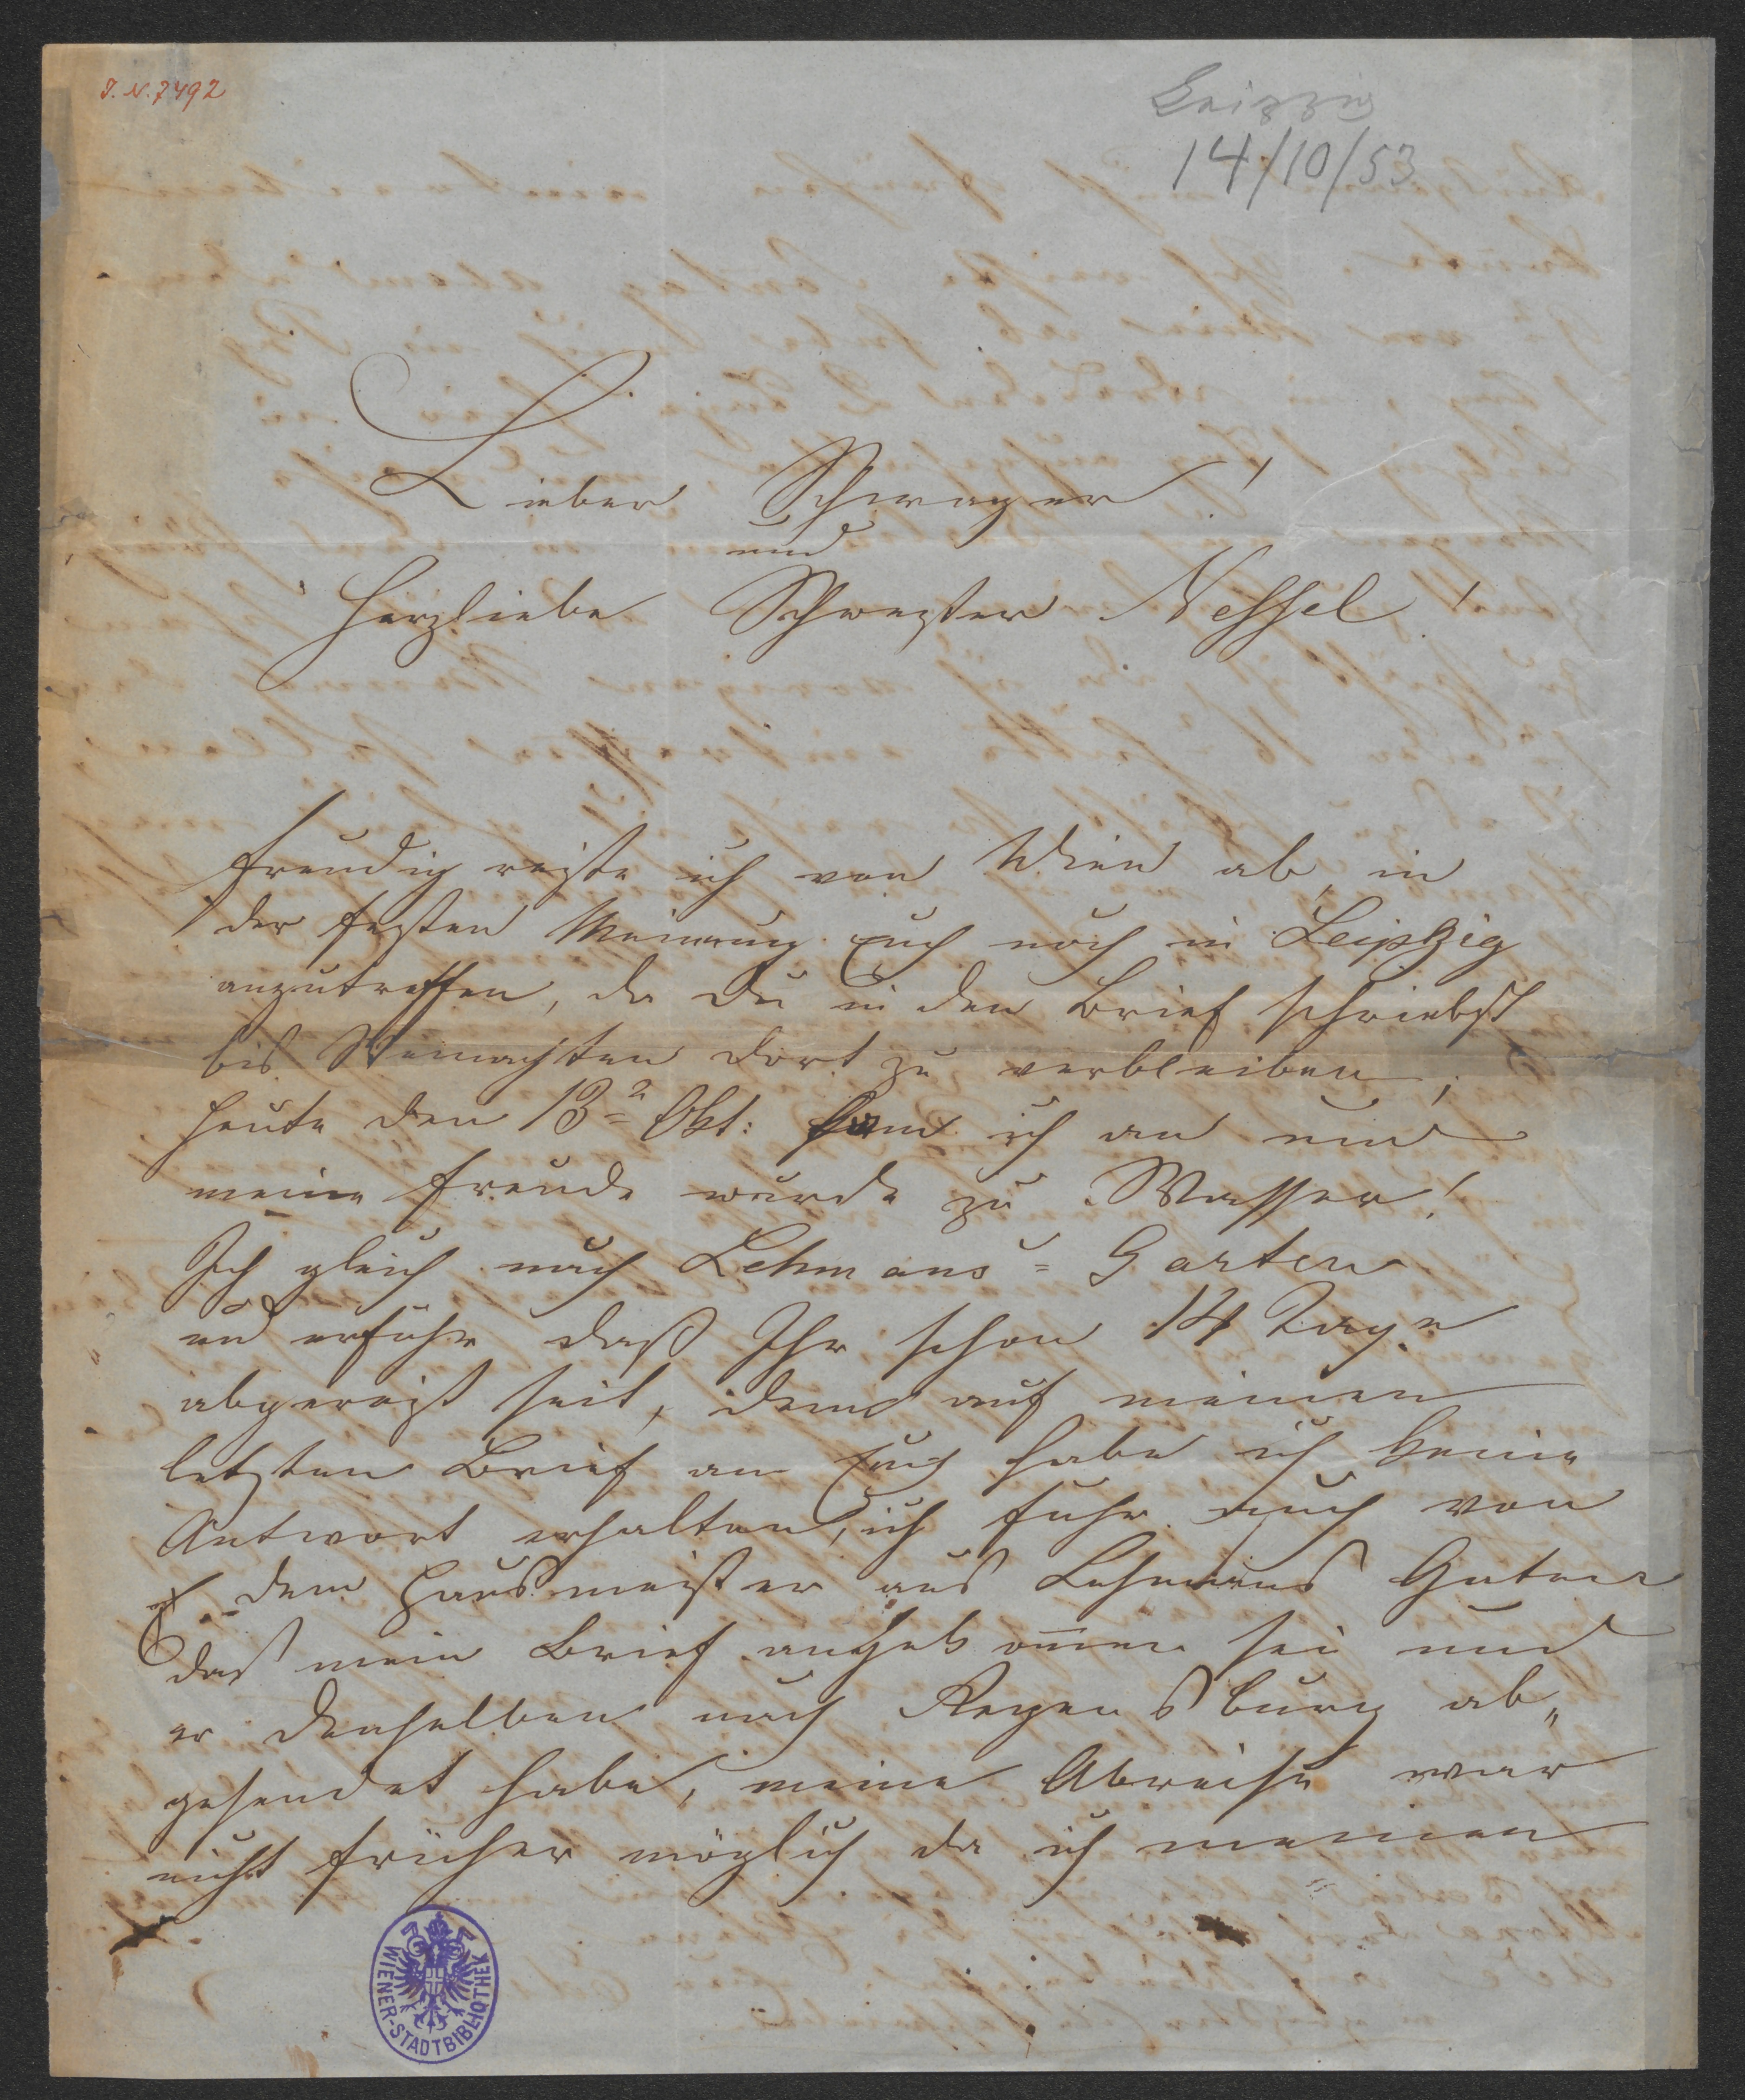 I. N. 7492
Leipzig
14/10/53
Lieber Schwager!
und
Herzliebe Schwester Nessel!
Freudig reiste ich von Wien ab, in
der festen Meinung Euch noch in Leipzig
anzutreffen, da Du in den Brief schriebst
bis Weinachten dort zu verbleiben;
heute den 13n Okt: kam ich an und
meine Freude wurde zu Wasser!
Ich gleich nach Lehmans=Garten
und erfuhr daß Ihr schon 14 Tage
abgereist seit, denn auf meinen
letzten Brief an Euch habe ich keine
Antwort erhalten, ich fuhr auch von
dem Hausmeister aus Lehmans Garten
daß mein Brief angekom̅en sei und
er denselben nach Regensburg ab„
gesendet habe, meine Abreise war
nicht früher möglich da ich meinen
WIENER-STADTBIBLIOTHEK